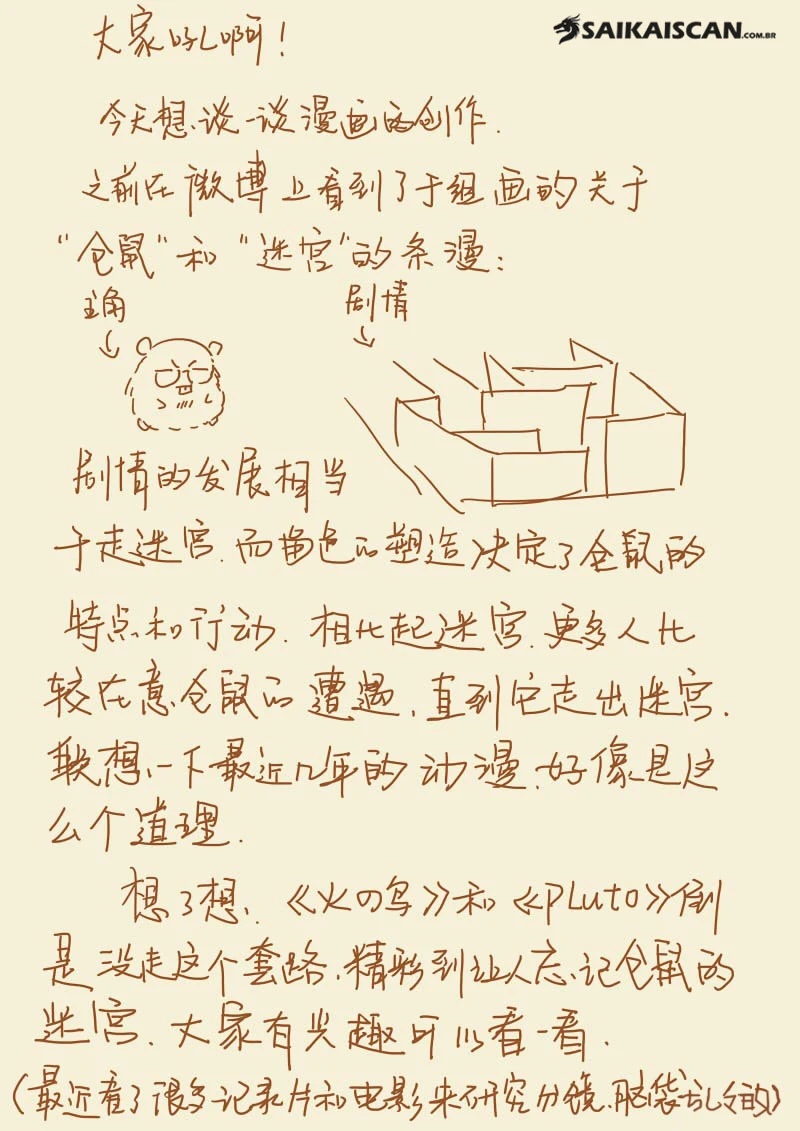 SAIKAISCAN.COM.BR
大家好啊！
今天想谈一谈漫画的创作.
之前在微博上看到了于组画的关于
“仓鼠”和“迷宫”的条漫：
主角
剧情
剧情的发展相当
于走迷宫.而角色的塑造决定了仓鼠的
特点和行动.相比起迷宫.更多人比
较在意仓鼠的遭遇，直到它走出迷宫.
联想一下最近几年的动漫.好像是这
么个道理.
想了想、《火の鸟》和《PLuto》倒
是没走这个套路.精彩到让人忘记仓鼠的
迷宫.大家有兴趣可以看一看.
(最近看了很多记录片和电影来研究分镜.脑袋乱乱的)